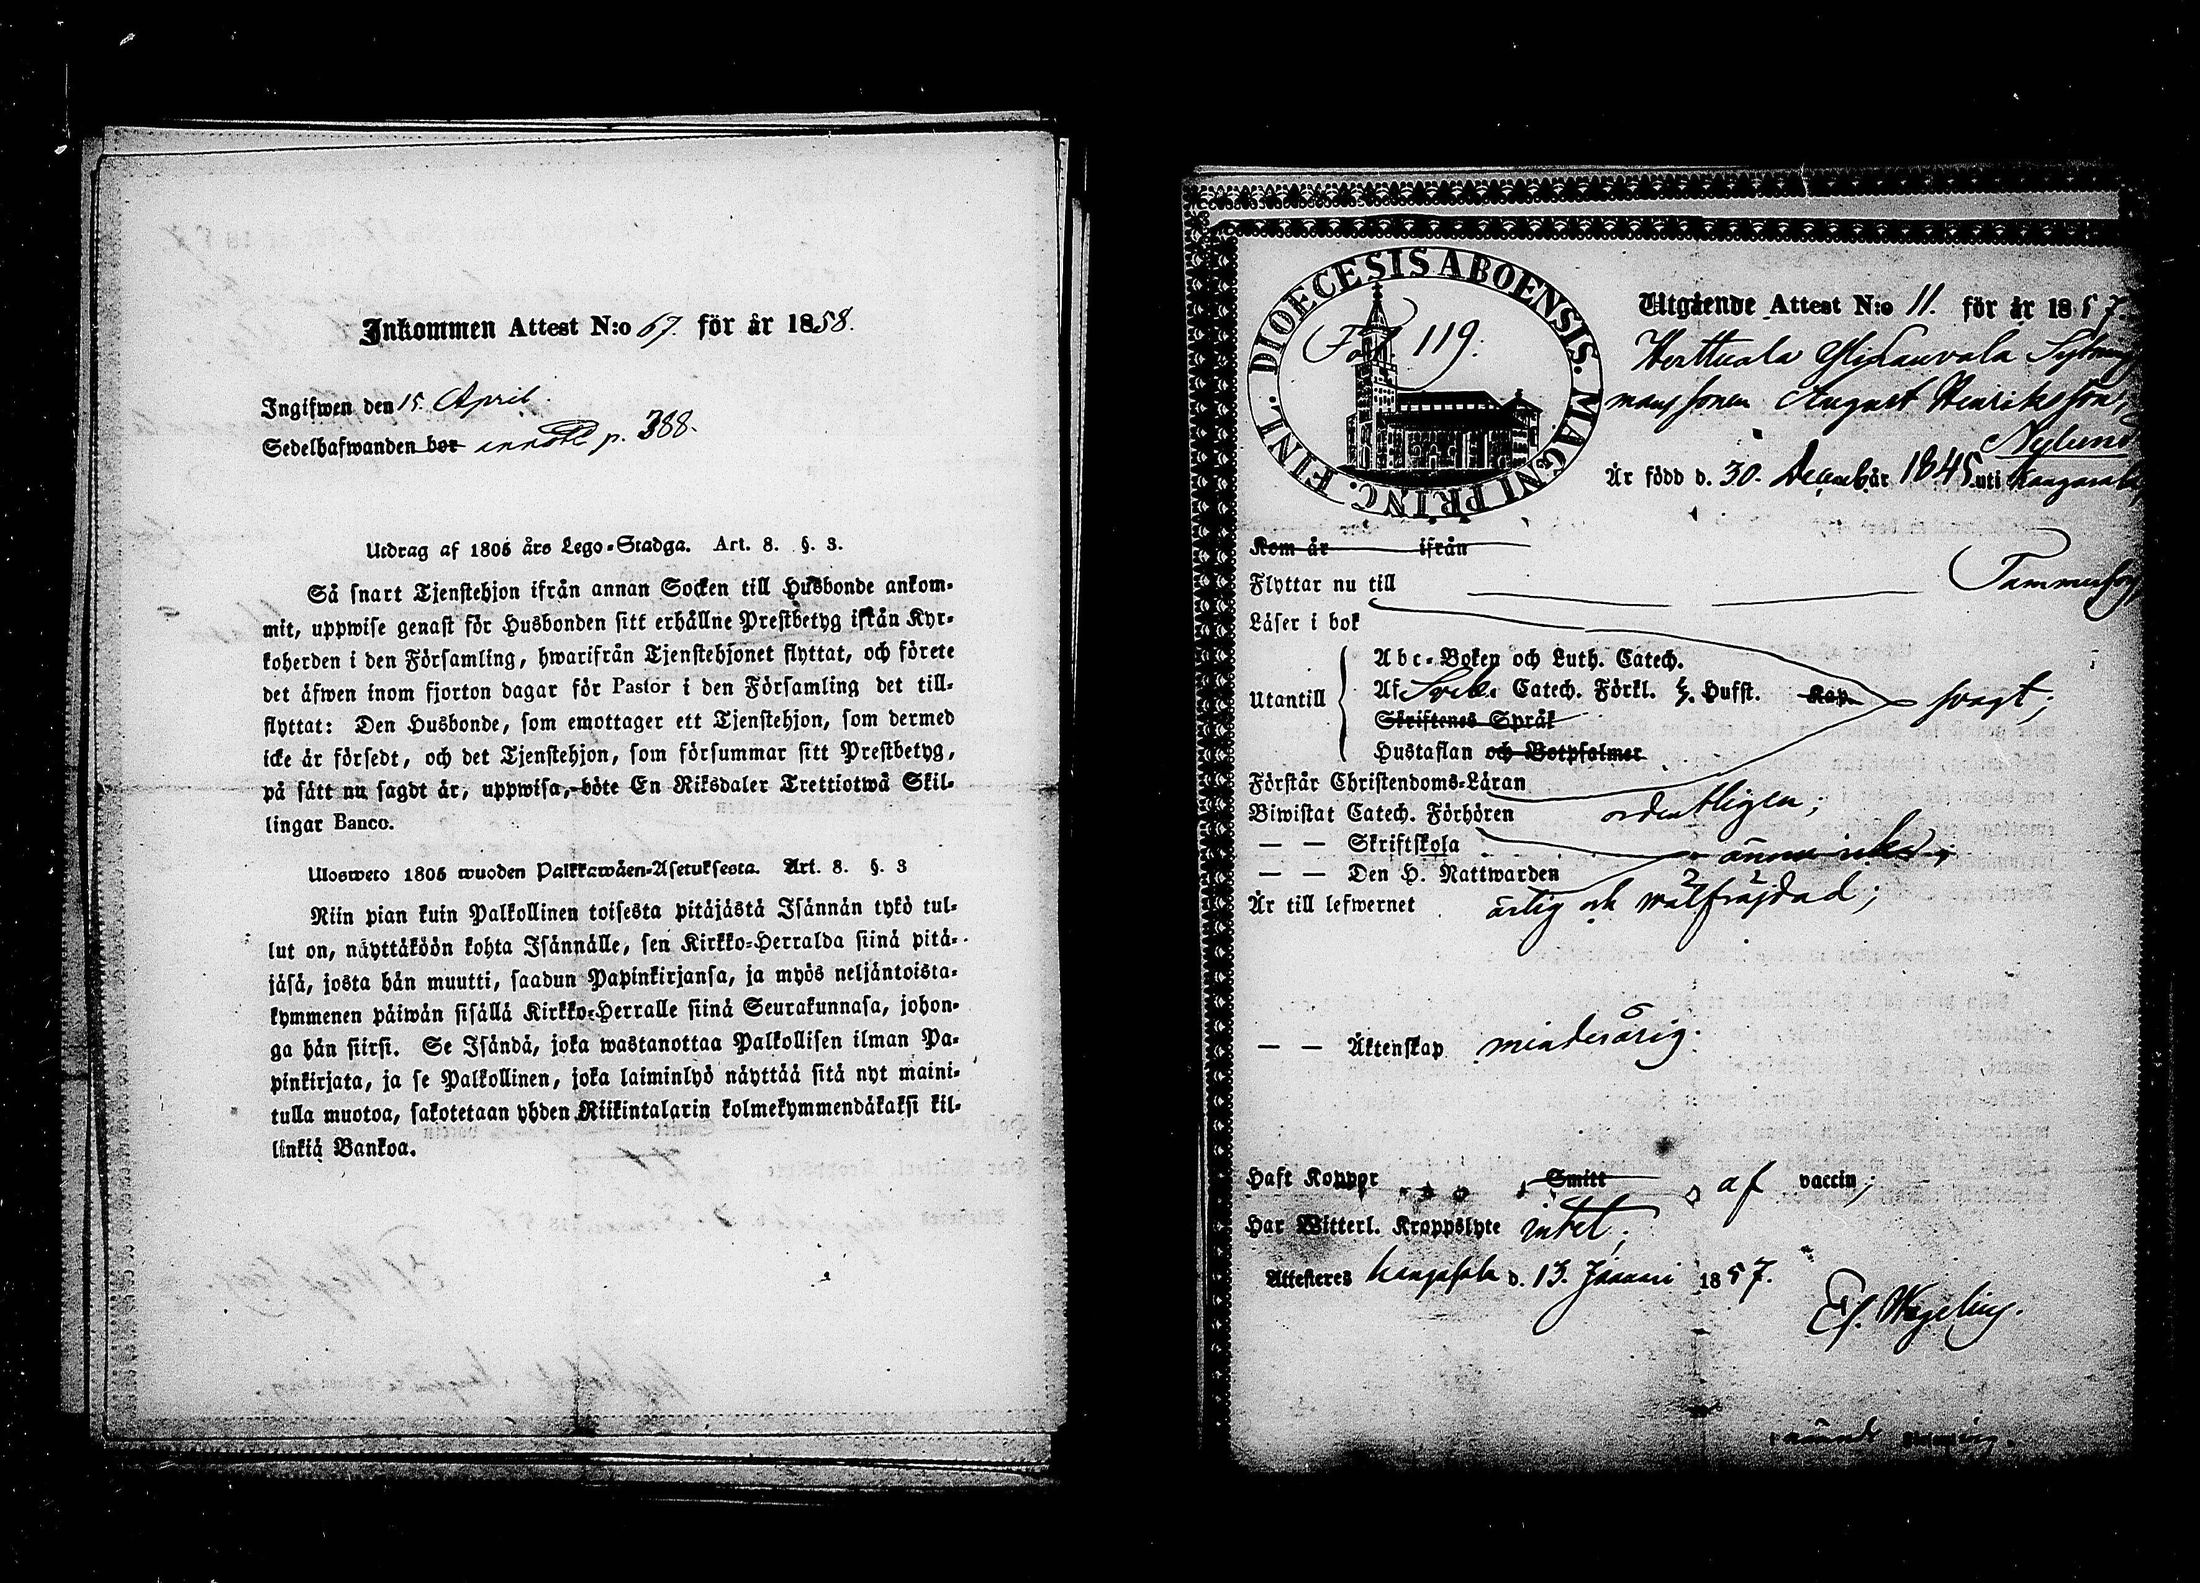 Inkommen Attest N:o 67. för år 1858.
Ingifwen den 15. April.
Sedelhafwanden bor p. 388.
Utdrag af 1805 års Lego-Stadga. Art. 8. §. 3.
Så snart Tjenstehjon ifrån annan Socken till Husbonde ankom-
mit, uppwise genast för Husbonden sitt erhållne Prestbetyg ifrån Kyr-
koherden i den Församling, hwarifrån Tjenstehjonet flyttat, och förete
det äfwen inom fjorton dagar för Pastor i den Församling det till-
flyttat: Den Husbonde, som emottager ett Tjenstehjon, som dermed
icke är försedt, och det Tjenstehjon, som försummar sitt Prestbetyg,
på sätt nu sagdt är, uppwisa, böte En Riksdaler Trettiotwå Skil-
lingar Banco.
Ulosweto 1805 wuoden Palkkawäen-Asetuksesta. Art. 8. §. 3
Niin pian kuin Palkollinen toisesta pitäjästä Isännän tykö tul-
lut on, näyttäköön kohta Isännälle, sen Kirkko-Herralda siinä pitä-
jäsä, josta hän muutti, saadun Papinkirjansa, ja myös neljäntoista-
kymmenen päiwän sisällä Kirkko-Herralle siinä Seurakunnasa, johon-
ga hän siirsi. Se Isändä, joka wastanottaa Palkollisen ilman Pa-
pinkirjata, ja se Palkollinen, joka laiminlyö näyttää sitä nyt maini-
tulla muotoa, sakotetaan yhden Riikintalarin kolmekymmendäkaksi kil-
linkiä Bankoa.
DIOECESIS ABOENSIS. MAGNI PRINC. FINL.
Fol 119.
Utgående Attest N:o 11. för år 1857.
Herttuala
August Henriksson,
Nylund
Är född d. 30. Decemb är 1845. uti Kangasala
Kom år ifrån
Flyttar nu till Tammerfors,
Läser i bok
Utantill
Abc-Boken och Luth. Catech.
Af Sveb. Catech. Förkl. Husst. Kap.
Skriftenes Språk
svagt;
Hustaflan och Botpsalmer
Förstår Christendoms-Läran
Biwistat Catech. Förhören ordentligen;
— — Skriftskola ännu icke;
— — Den H. Nattwarden
Är till lefwernet ärlig och wälfräjdad;
— — Äktenskap minderårig.
Haft Koppor Smitt af vaccin;
Har Witterl. Kroppslyte intet;
Attesteres Kangasala d. 13. Januari 1857.